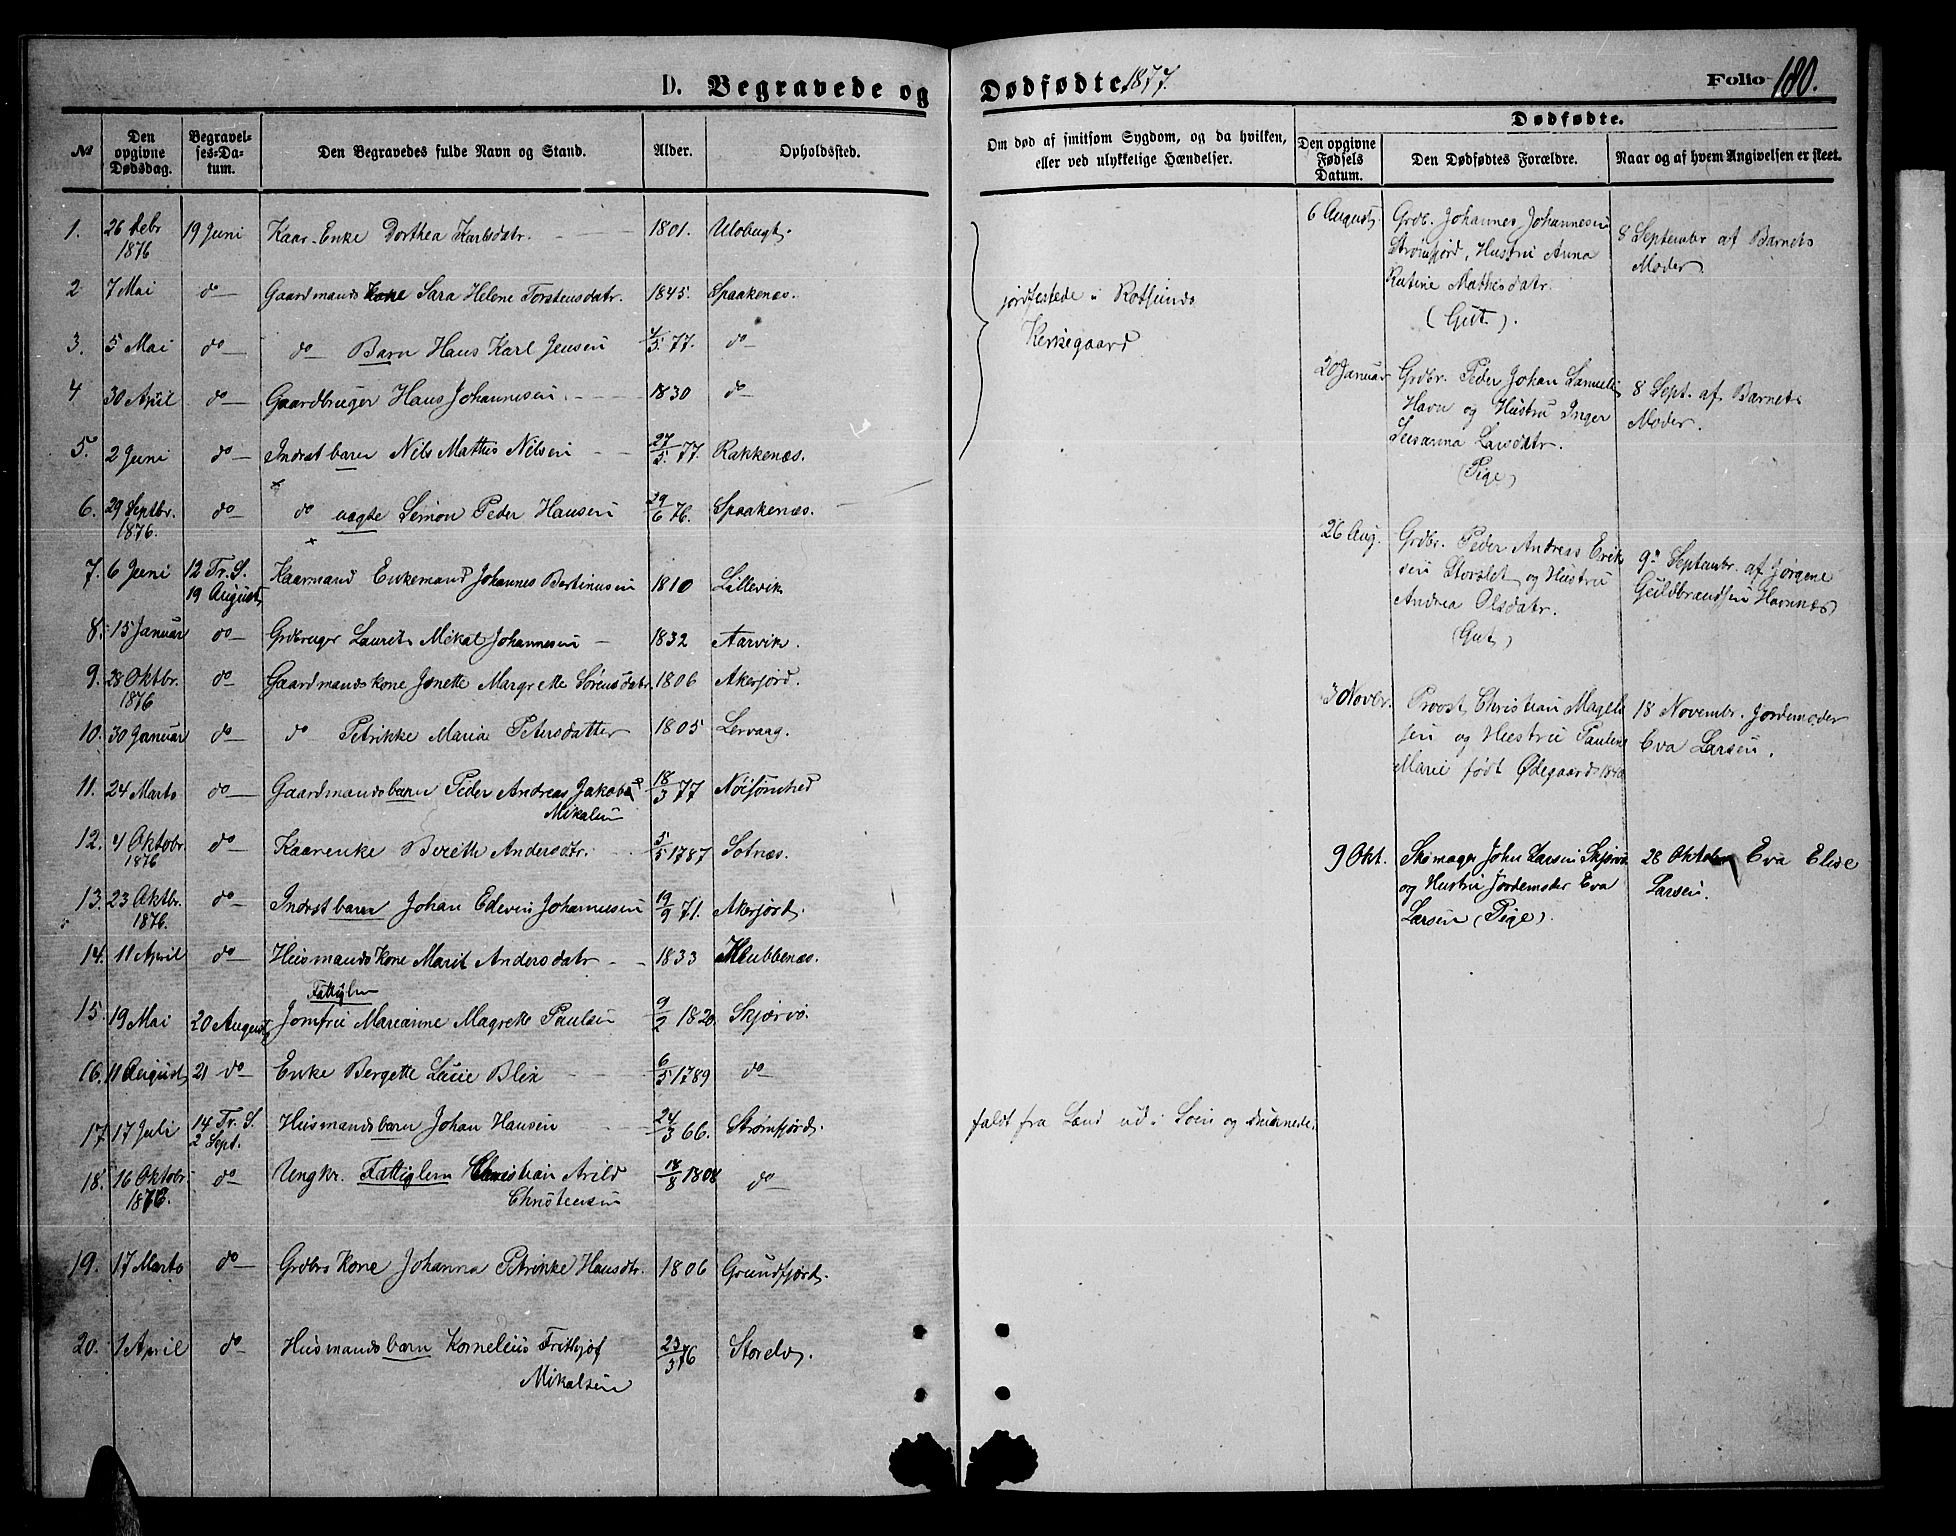 D. Begravede og
Dødfødte 1877.
Folio 180.
№
Den opgivne Dødsdag.
Begravelses-Datum.
Den Begravedes fulde Navn og Stand.
Alder.
Opholdssted.
Om død af smitsom Sygdom, og da hvilken,
eller ved ulykkelige Hændelser.
Dødfødte.
Den opgivne Fødsels Datum.
Den Dødfødtes Forældre.
Naar og af hvem Angivelsen er skeet.
1. 26 Febr 1876 19 Juni Kaar-Enke Dorthea Karlsdatr. 1801. Uløbugt.
2 7 Mai do Gaardmands Kone Sara Helene Torstensdatr. 1845. Spaakenæs.
3. 5 Mai do do Barn Hans Karl Jensen 4/5 77. do
4 30 April do Gaardbruger Hans Johannesen. 1830 do
5. 2 Juni do Indrstbarn Nils Mathis Nilsen 27/5 77. Rakkenæs.
6. 29 Septbr. 1876. do do uægte Simon Peder Hansen 29/6 76. Spaakenæs.
7. 6 Juni 12 Tr. S. 19 August Kaarmand Enkemand Johannes Bertinusen 1810 Lillevik
8. 15 Januar do Grdbruger Laurits Mikal Johannesen 1832 Aarvik.
9. 28 Oktbr. 1876 do Gaardmandskone Jonette Margrette Sørensdatr. 1806 Akerfjord.
10. 30 Januar do do Petrikke Maria Petersdatter 1805 Lervaag.
11. 24 Marts do Gaardmandsbarn Peder Andreas Jakob
Mikalsen 18/3 77
12. 4 Oktobr. 1876 do Kaarenke Bereth Andersdtr. 5/5 1787 Sotnæs.
13. 23 Oktbr. 1876. do Indrstbarn Johan Edevin Johannesen 19/9 71. Akerfjord.
14. 11 April do Husmandskone Marit Andersdatr 1833 Klubbenæs.
15. 19 Mai 20 August Fattiglem
Jomfru Marianne Magrete Paulsen 9/2 1820. Skjærvø.
16. 11 August 21 do Enke Bergette Lucie Blix 6/5 1789 do
17. 17 Juli 14 Tr. S. 2 Sept. Husmandsbarn Johan Hansen 24/3 66. Strømfjord.
18. 16 Oktobr 1876. do Ungkr. Fattiglem Christian Arild
Christensen 18/8 1808 do
19. 17 Marts do Grdbrs Kone Johanna Petrikke Hansdtr. 1806 Grundfjord.
20. 1 April do Husmandsbarn Kornelius Frithjof
Mikalsen 23/3 76 Storelv.
jordfestede i Rotsunds
Kirkegaard.
faldt fra Land ud i Søen og druknede.
6 August. Grdb. Johannes Johannesen
Strømfjord, Hustru Anna
Katrine Mathisdatr.
(Gut).
8 Septembr af Barnets
Moder.
20 Januar Grdbr. Peder Johan Samuels
Havn og Hustru Inger
Susanna Larsdatr.
(Pige)
8 Sept. af Barnets
Moder.
26 Aug. Grdbr. Peder Andreas Erik
sen Storslet og Hustru
Andrea Olsdatr.
(Gut)
9n Septembr. af Jørgene
Guldbrandsen Havnnæs
3 Novbr. Provst Christian Magels
sen og Hustru Pauline
Marie født Ødegaard
18 Novembr. Jordemoder
Eva Larsen.
9 Okt. Skomager John Larsen Skjærvø
og Hustru Jordemoder Eva
Larsen (Pige).
28 Oktober Eva Elise
Larsen.